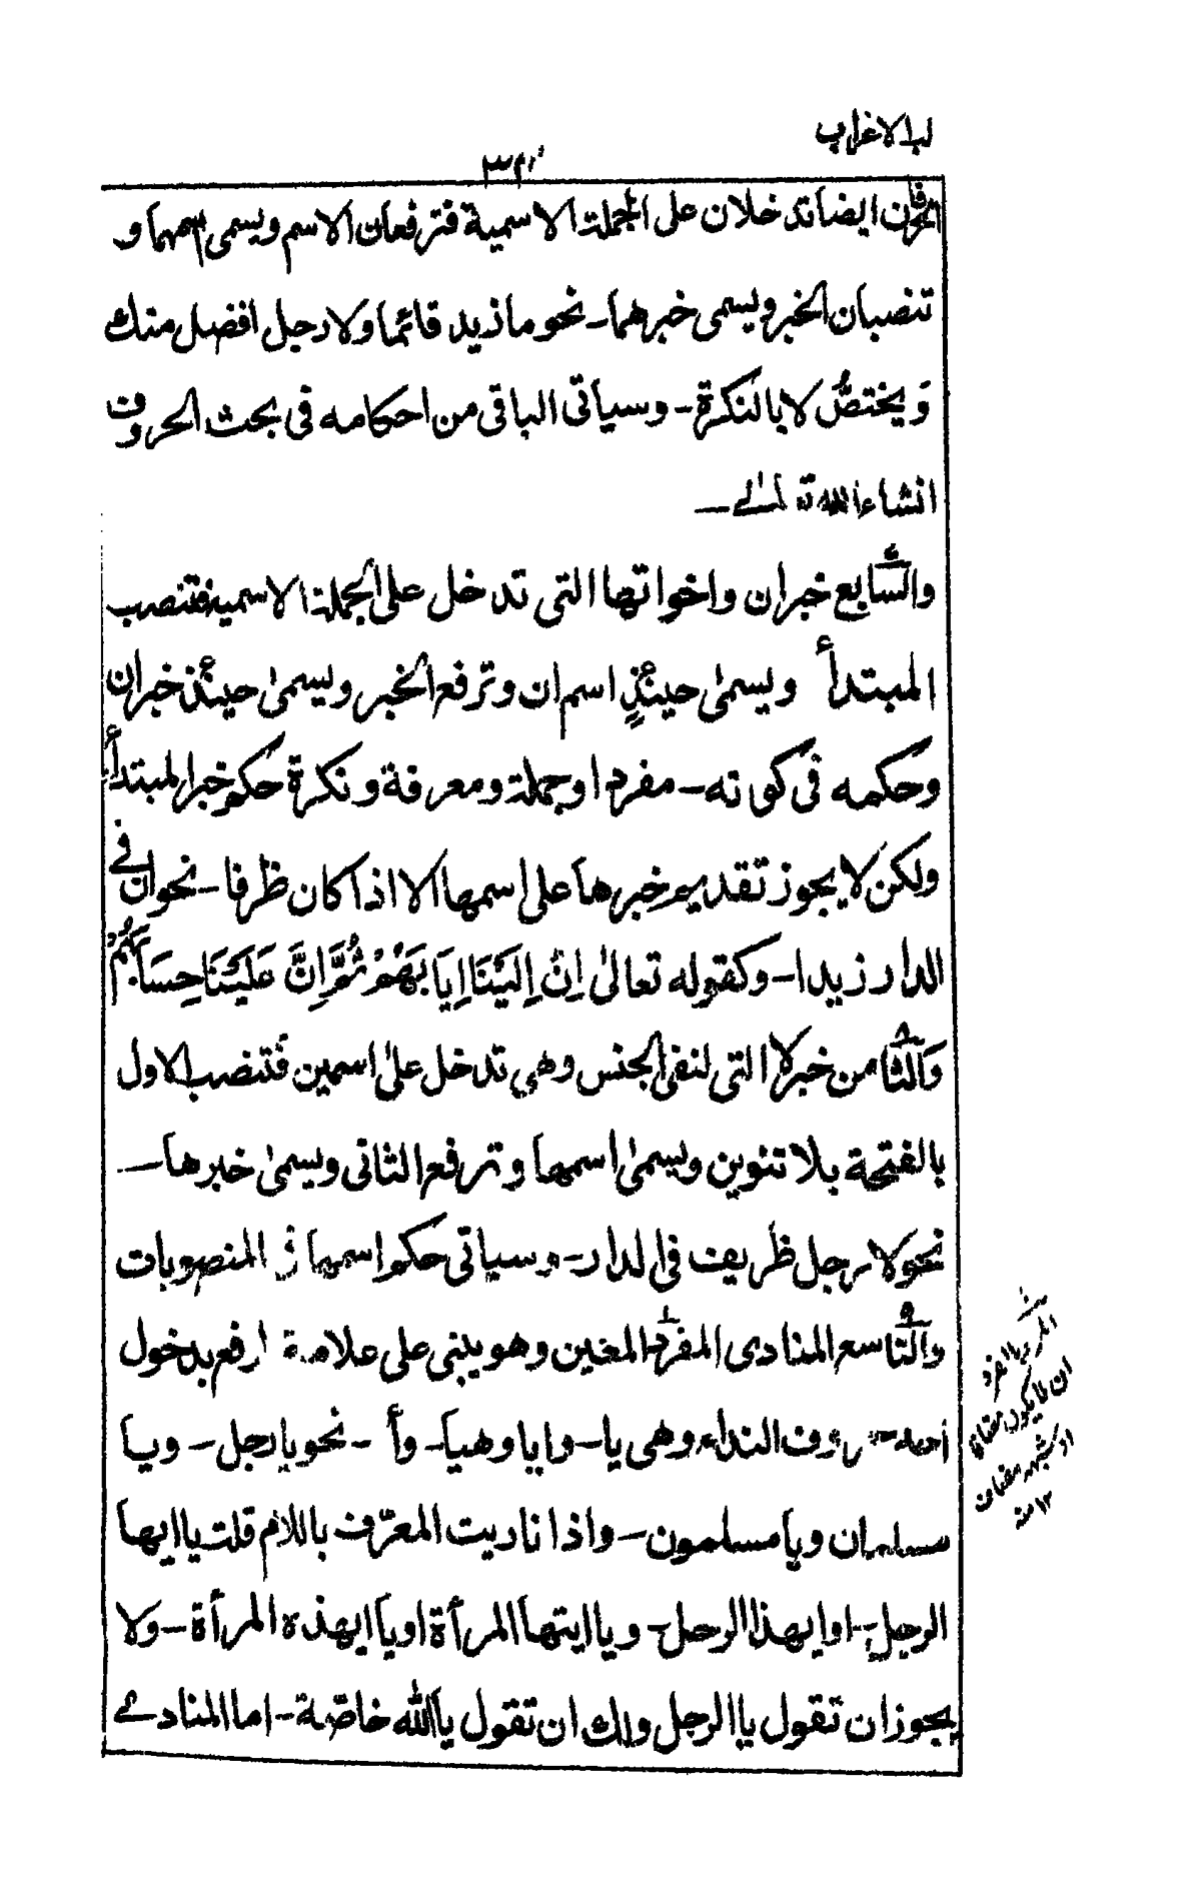 لب الاعراب
الحرفان ايضا تدخلان على الجملة الاسمية فترفعان الاسم ويسمى اسمهما و
تنصبان الخبر ويسمى خبرهما ـ نحو ما زيد قائما ولا رجل افضل منك
وَيختصُّ لا بالنكرة ـ وسياتى الباقى من احكامه فى بحث الحروف
انشاء الله تعالے ـ
والسَّابع خبر ان واخواتها التى تدخل على الجملة الاسمية فتنصب
المبتدأ ويسمىٰ حينئذٍ اسم ان وترفع الخبر ويسمىٰ حينئذ خبر ان
وحكمه فى كونه ـ مفردا وجملة ومعرفة ونكرة حكم خبر المبتدأ
ولكن لا يجوز تقديم خبرها على اسمها الا اذا كان ظرفا ـ نحو ان فے
الدار زيدا ـ وكقوله تعالىٰ اِنَّ اِلَيْنَا اِيَابَهُمْ ثُمَّ اِنَّ عَلَيْنَا حِسَابَهُمْ
وَالثَّامن خبر لا التى لنفى الجنس وهى تدخل علىٰ اسمين فَتنصب الاول
بالفتحة بلا تنوين ويسمىٰ اسمها وترفع الثانى ويسمىٰ خبرها ـ
نحو لا رجل ظريف فى الدار ـ وسياتى حكم اسمها فى المنصوبات
والتَّاسع المنادى المفرد المعين وهو يبنى على علامة الرفع بدخول
احد حروف النداء وهى يا ـ وايا وهيا ـ وأ ـ نحو يا رجل ـ ويا
مسلمان ويا مسلمون ـ واذا ناديت المعرّف باللام قلت يا ايها
الرجل ـ او ايهذا الرجل ـ ويا ايتها المرأة او يا ايهذه المرأة ـ ولا
يجوز ان تقول يا الرجل ولك ان تقول يا الله خاصّة ـ اما المنادے
ان لا يكون مضافا
او شبه مضاف
۱۲ منه